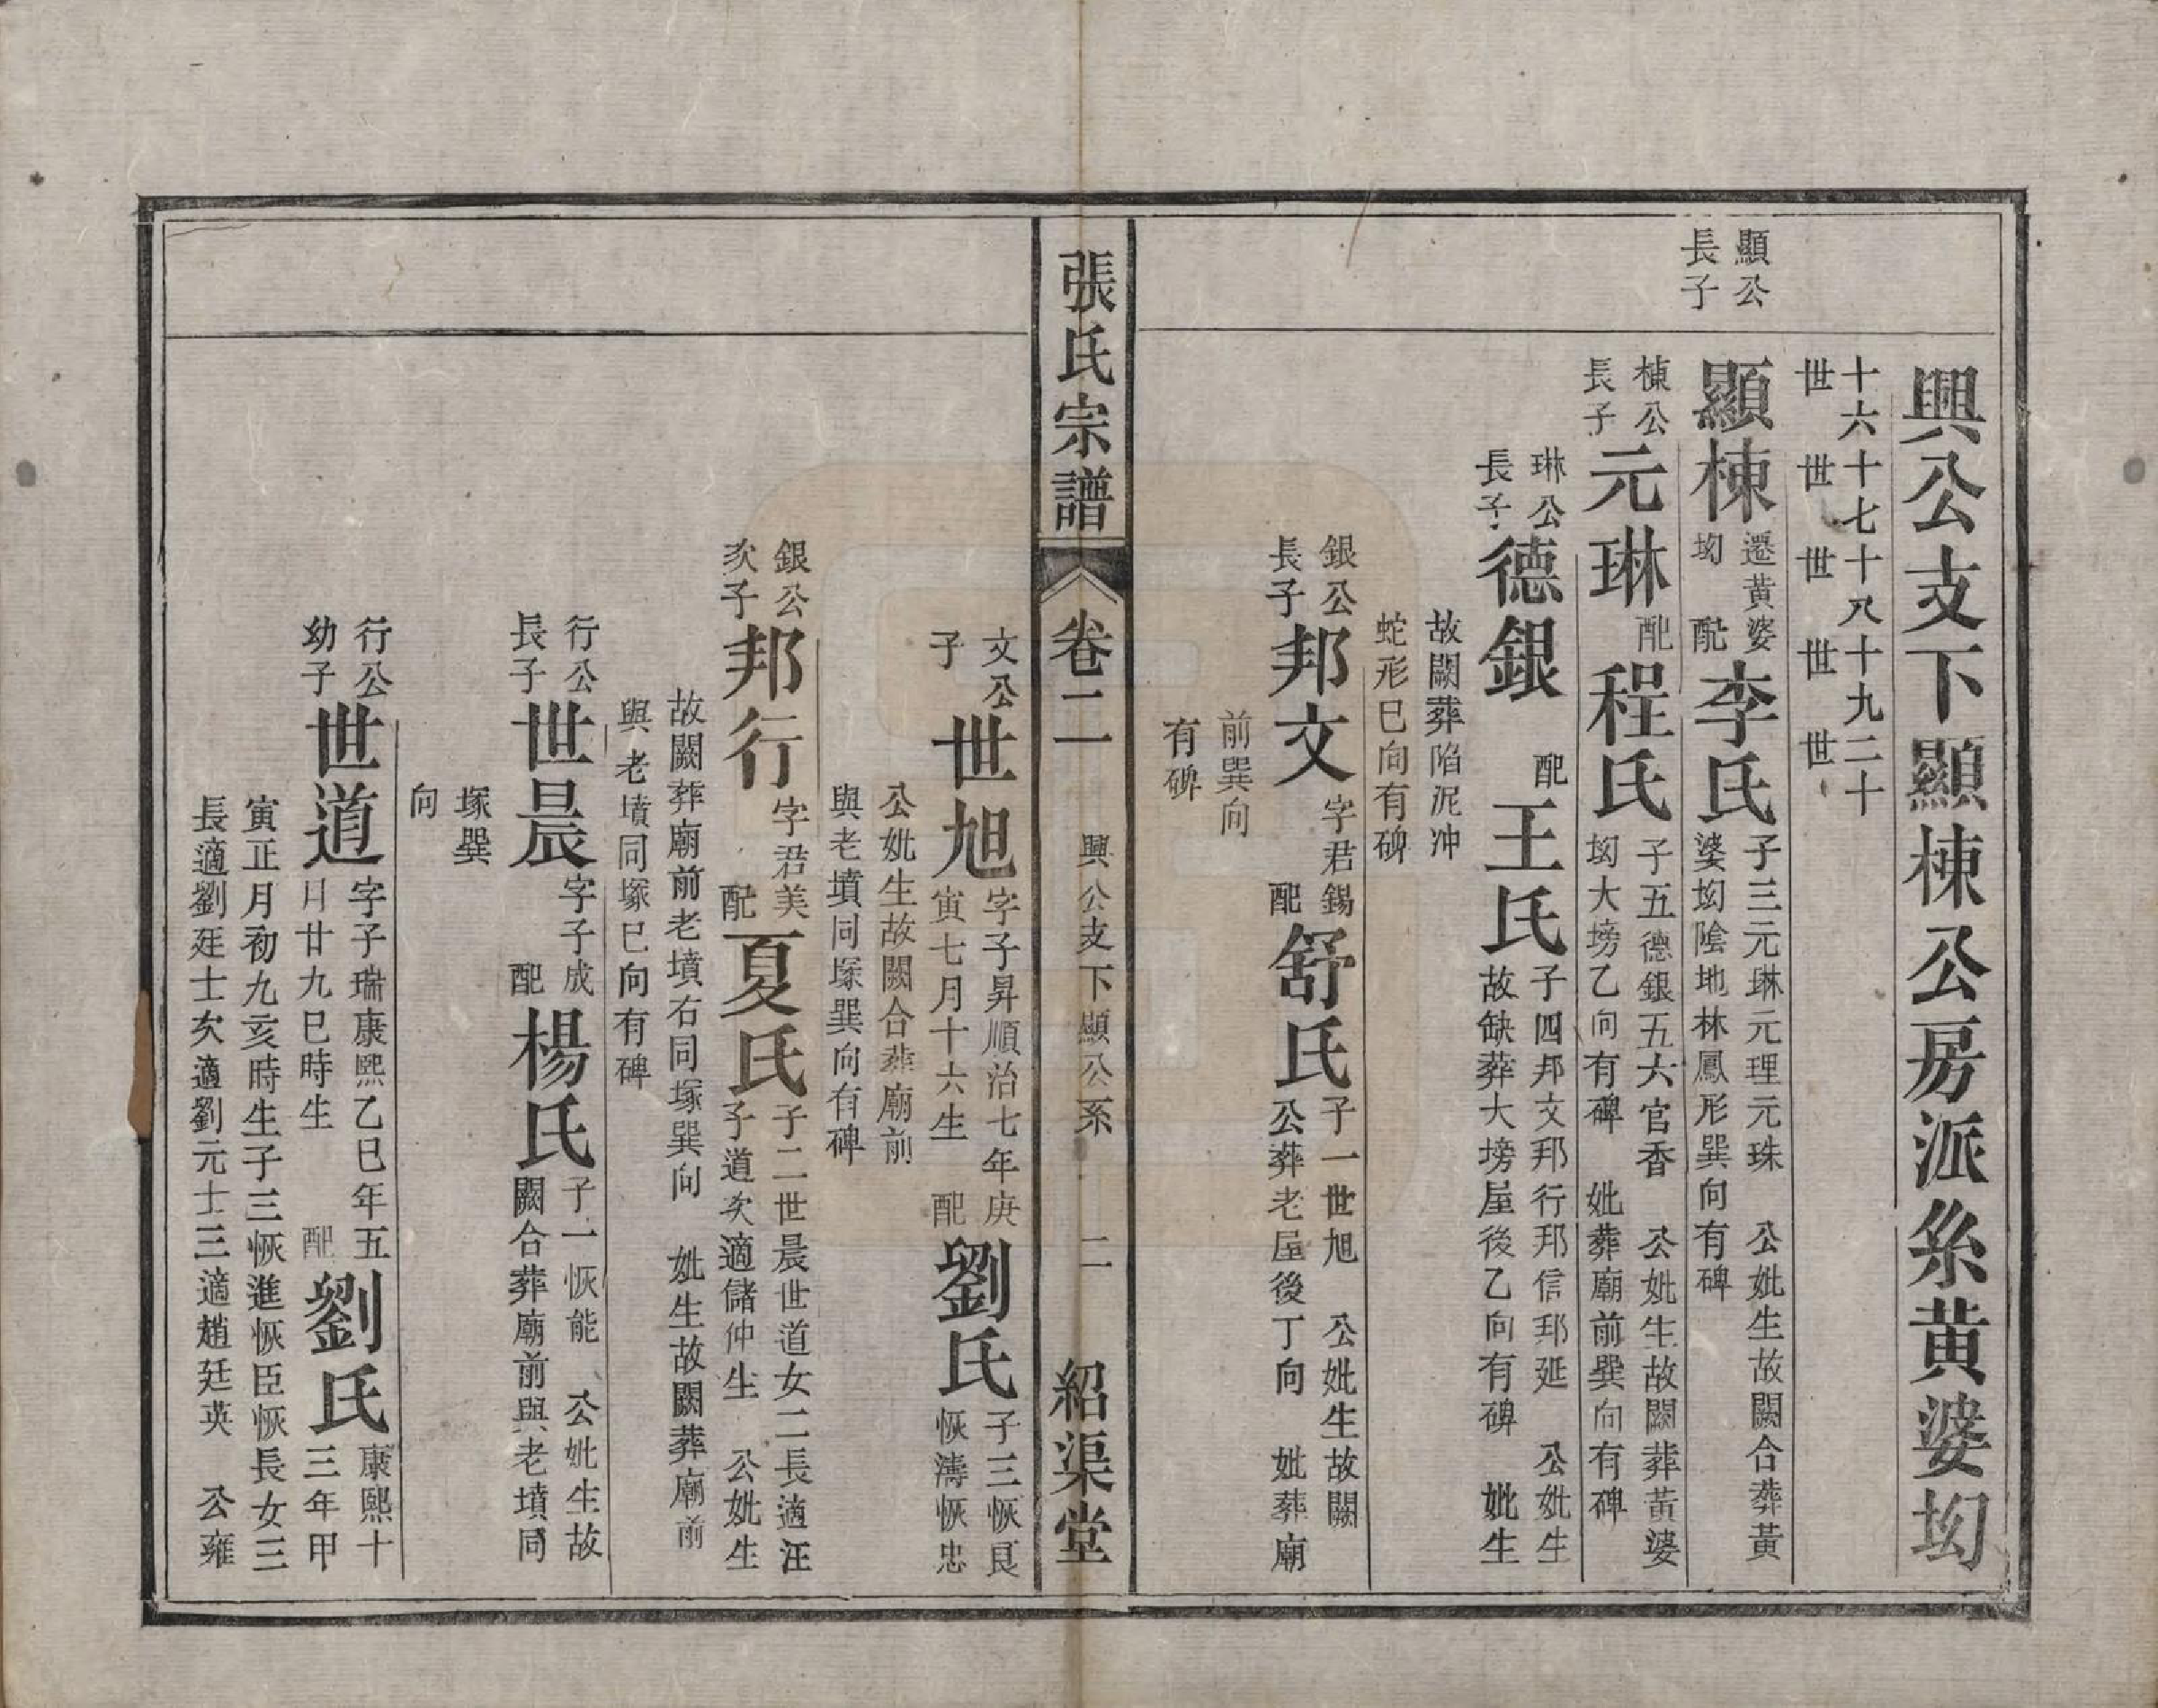 興公支下顯棟公房派系黃婆㘭
十六十七十八十九二十
世　世　世　世　世
顯公
長子
顯棟
遷黃婆
㘭　配
李氏
子三元琳元理元珠　公妣生故闕合葬黃
婆㘭陰地林鳳形巽向有碑
棟公
長子
元琳
配
程氏
子五德銀五六官香　公妣生故闕葬黃婆
㘭大塝乙向有碑　妣葬廟前巽向有碑
琳公
長子
德銀
配
王氏
子四邦文邦行邦信邦延　公妣生
故缺葬大塝屋後乙向有碑　妣生
故闕葬陷泥冲
蛇形巳向有碑
銀公
長子
邦文
字君錫
配
舒氏
子一世旭　公妣生故闕
公葬老屋後丁向　妣葬廟
前巽向
有碑
張氏宗譜
卷二
興公支下顯公系
二
紹渠堂
文公
子
世旭
字子昇順治七年庚
寅七月十六生
配
劉氏
子三恢良
恢濤恢忠
公妣生故闕合葬廟前
與老墳同塚巽向有碑
銀公
次子
邦行
字君美
配
夏氏
子二世晨世道女二長適汪
子道次適儲仲生　公妣生
故闕葬廟前老墳右同塚巽向　妣生故闕葬廟前
與老墳同塚巳向有碑
行公
長子
世晨
字子成
配
楊氏
子一恢能　公妣生故
闕合葬廟前與老墳同
塚巽
向
行公
幼子
世道
字子瑞康熙乙巳年五
月廿九巳時生
配
劉氏
康熙十
三年甲
寅正月初九亥時生子三恢進恢臣恢長女三
長適劉廷士次適劉元士三適趙廷英　公雍